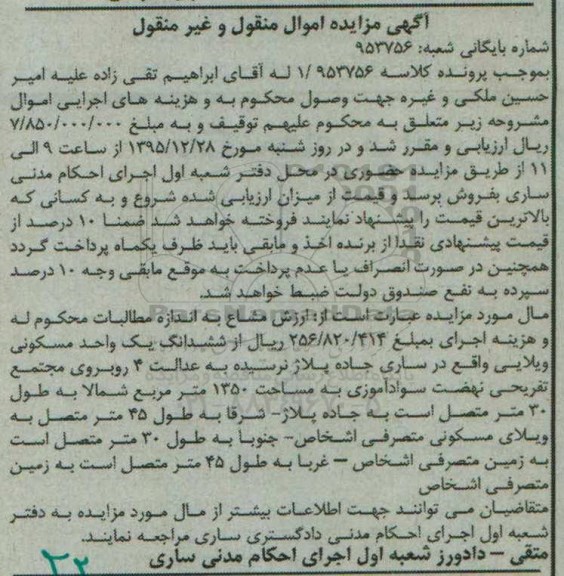 آگهی مزایده اموال منقول و غیر منقول
شماره بایگانی شعبه: ۹۵۳۷۵۶
بموجب پرونده کلاسه ۹۵۳۷۵۶ /۱ لـه آقـای ابراهیـم تقـی زاده علیـه امیـر
حسین ملکـی و غیـره جهـت وصـول محکـوم به و هزینه هـای اجرایـی امـوال
مشـروحه زیـر متعلـق به محکـوم علیهـم توقیـف و به مبلـغ ۷/۸۵۰/۰۰۰/۰۰۰
ریـال ارزیابـی و مقـرر شـد و در روز شنبه مـورخ ۱۳۹۵/۱۲/۲۸ از سـاعت ۹ الـی
۱۱ از طریـق مزایـده حضـوری در محـل دفتـر شـعبه اول اجـرای احـکام مدنـی
سـاری بفـروش برسـد و قیمـت از میـزان ارزیابـی شـده شـروع و به کسـانی کـه
بالاتریـن قیمـت را پیشـنهاد نماینـد فروختـه خواهـد شـد ضمنـا ۱۰ درصـد از
قیمت پیشـنهادی نقـدا از برنـده اخـذ و مابقـی بایـد ظـرف یکمـاه پرداخـت گـردد
همچنیـن در صـورت انصـراف یـا عـدم پرداخـت به موقـع مابقـی وجـه ۱۰ درصـد
سـپرده به نفـع صنـدوق دولـت ضبـط خواهـد شـد.
مـال مـورد مزایـده عبارت اسـت از: ارزش مشـاع به انـدازه مطالبـات محکـوم لـه
و هزینـه اجـرای بمبلـغ ۲۵۶/۸۲۰/۴۱۴ ریـال از ششـدانگ یـک واحـد مسـکونی
ویلایـی واقـع در سـاری جـاده پـلاژ نرسـیده به عدالـت ۴ روبـروی مجتمـع
تفریحـی نهضـت سـوادآموزی به مسـاحت ۱۳۵۰ متـر مربـع شـمالا به طـول
۳۰ متـر متصـل اسـت به جـاده پـلاژ- شـرقا به طـول ۴۵ متـر متصـل به
ویـلای مسـکونی متصرفـی اشـخاص- جنوبـا به طـول ۳۰ متـر متصـل اسـت
به زمیـن متصرفـی اشـخاص – غربـا به طـول ۴۵ متـر متصـل اسـت به زمیـن
متصرفـی اشـخاص
متقاضیـان مـی تواننـد جهـت اطلاعـات بیشـتر از مـال مـورد مزایـده به دفتـر
شـعبه اول اجـرای احـکام مدنـی دادگسـتری سـاری مراجعـه نماینـد.
متقی – دادورز شعبه اول اجرای احکام مدنی ساری
۳۲